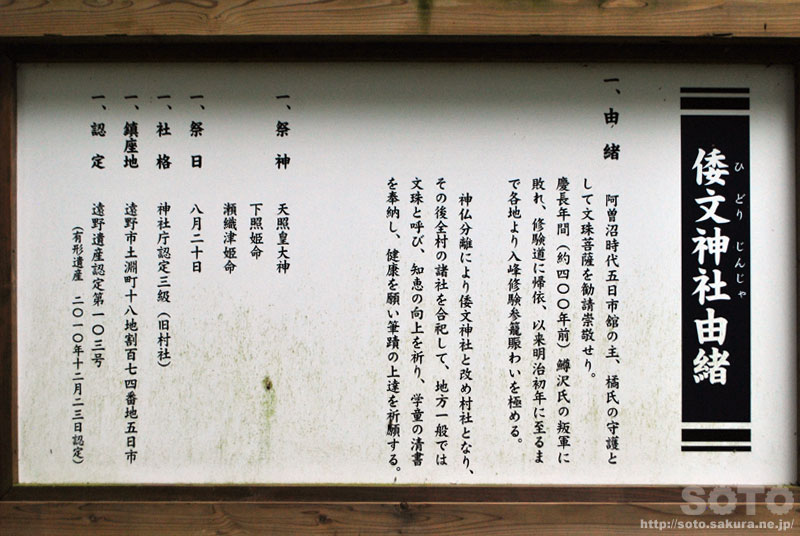 倭文神社由緒
ひどりじんじゃ
一、由緒　阿曽沼時代五日市館の主、橘氏の守護と
して文珠菩薩を勧請崇敬せり。
慶長年間（約四〇〇年前）鱒沢氏の叛軍に
敗れ、修験道に帰依、以来明治初年に至るま
で各地より入峰修験参籠賑わいを極める。
神仏分離により倭文神社と改め村社となり、
その後全村の諸社を合祀して、地方一般では
文珠と呼び、知恵の向上を祈り、学童の清書
を奉納し、健康を願い筆蹟の上達を祈願する。
一、祭神　天照皇大神
下照姫命
瀬織津姫命
一、祭日　八月二十日
一、社格　神社庁認定三級（旧村社）
一、鎮座地　遠野市土淵町十八地割百七四番地五日市
一、認定　遠野遺産認定第一〇三号
（有形遺産　二〇一〇年十二月二三日認定）
SOTO
http://soto.sakura.ne.jp/